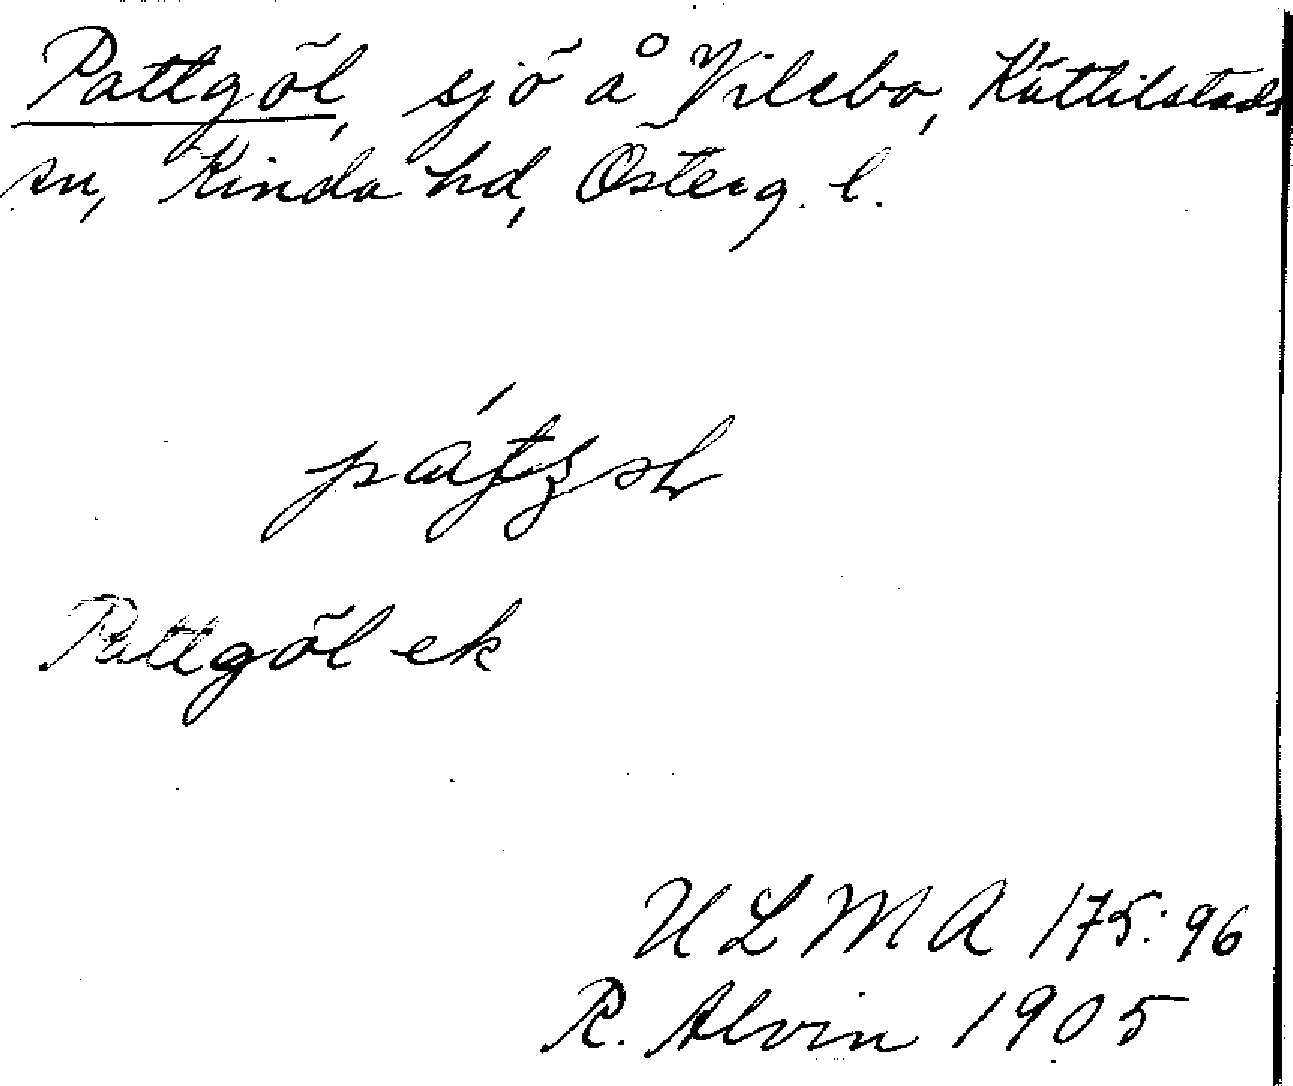 Pattgöl, sjö å Vilsbo, Kättilstads
sn, Kinda hd, Österg. l.
Pattgöl ek
ULMA 175:96
R. Alvin 1905